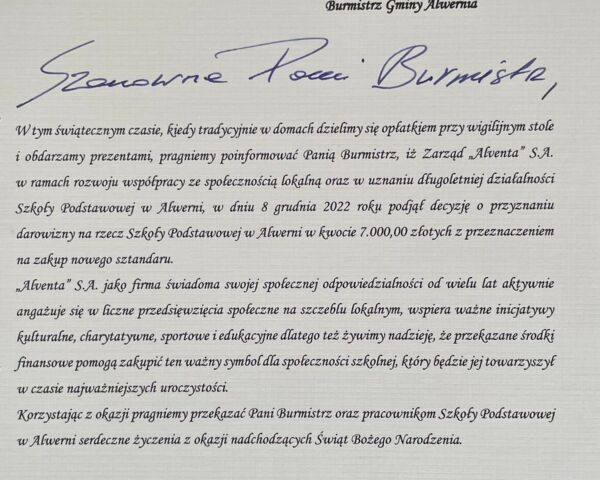 Burmistrz Gminy Alwernia
Szanowna Pani Burmistrz,
W tym świątecznym czasie, kiedy tradycyjnie w domach dzielimy się opłatkiem przy wigilijnym stole
i obdarzamy prezentami, pragniemy poinformować Panią Burmistrz, iż Zarząd „Alventa” S.A.
w ramach rozwoju współpracy ze społecznością lokalną oraz w uznaniu długoletniej działalności
Szkoły Podstawowej w Alwerni, w dniu 8 grudnia 2022 roku podjął decyzję o przyznaniu
darowizny na rzecz Szkoły Podstawowej w Alwerni w kwocie 7.000,00 złotych z przeznaczeniem
na zakup nowego sztandaru.
„Alventa” S.A. jako firma świadoma swojej społecznej odpowiedzialności od wielu lat aktywnie
angażuje się w liczne przedsięwzięcia społeczne na szczeblu lokalnym, wspiera ważne inicjatywy
kulturalne, charytatywne, sportowe i edukacyjne dlatego też żywimy nadzieję, że przekazane środki
finansowe pomogą zakupić ten ważny symbol dla społeczności szkolnej, który będzie jej towarzyszył
w czasie najważniejszych uroczystości.
Korzystając z okazji pragniemy przekazać Pani Burmistrz oraz pracownikom Szkoły Podstawowej
w Alwerni serdeczne życzenia z okazji nadchodzących Świąt Bożego Narodzenia.